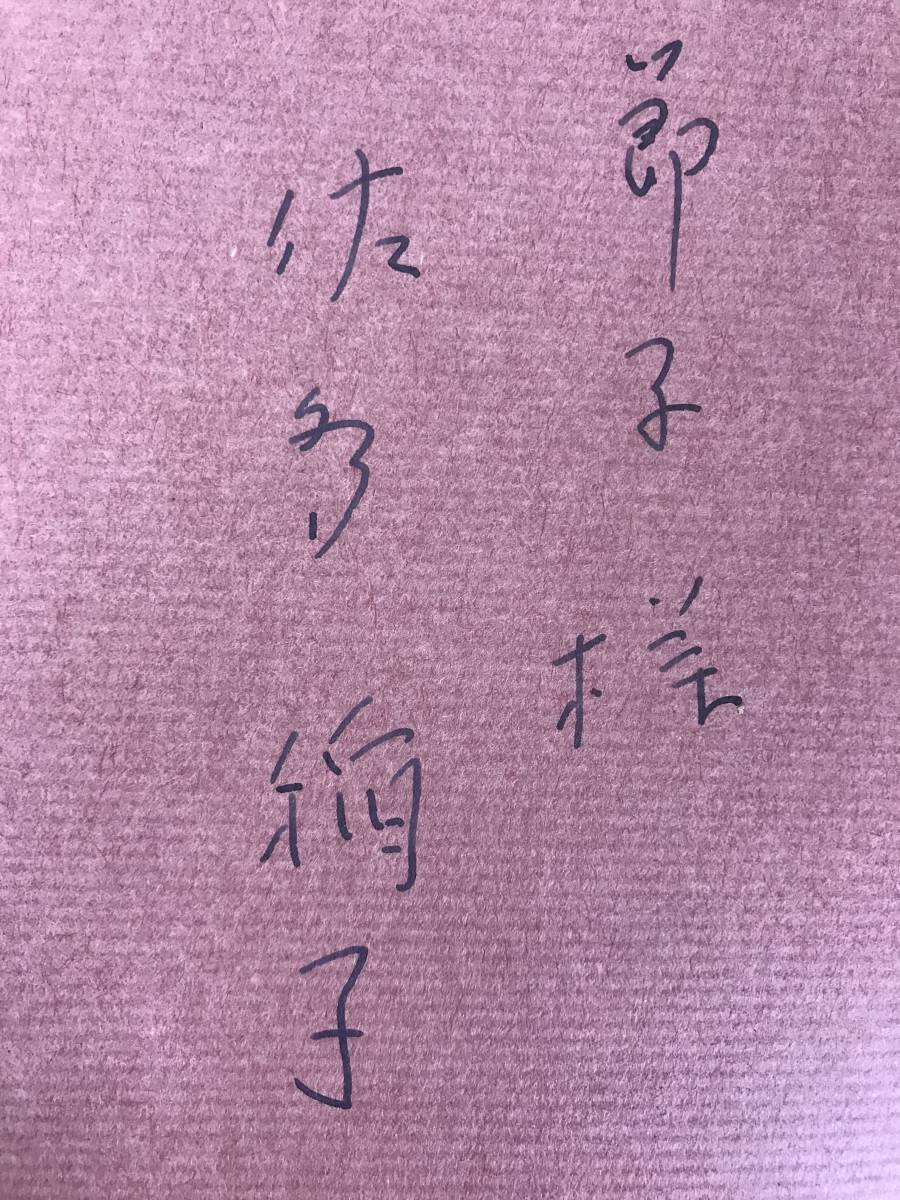 節子様
佐多稲子